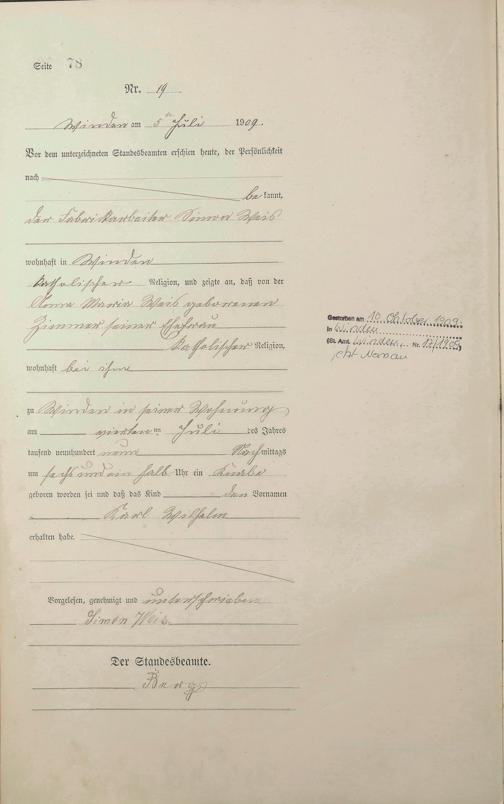 Seite 78
Nr. 19
Winden am 5ten Juli 1909.
Vor dem unterzeichneten Standesbeamten erschien heute, der Persönlichkeit
nach
be kannt,
der Fabrikarbeiter Simon Weis
wohnhaft in Winden
katholischer Religion, und zeigte an, daß von der
Anna Maria Weis geborenen
Zimmer seiner Ehefrau
katholischer Religion,
wohnhaft bei ihm
zu Winden in seiner Wohnung
am vierten ten Juli des Jahres
tausend neunhundert neun Nachmittags
um sechs und ein halb Uhr ein Knabe
geboren worden sei und daß das Kind den Vornamen
Karl Wilhelm
erhalten habe.
Vorgelesen, genehmigt und unterschrieben
Simon Weis
Der Standesbeamte.
Gestorben am 10. Oktober 1909.
in Winden
(St. Amt. Winden Nr.